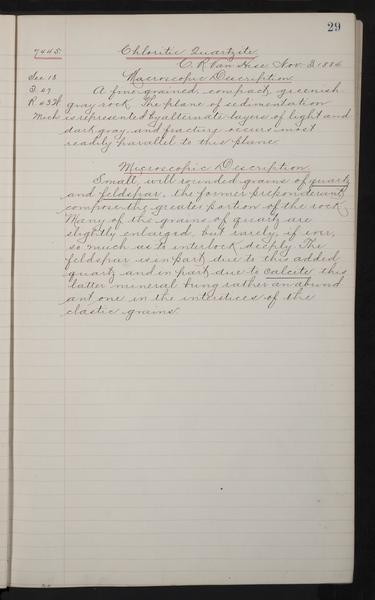 29
7445. Chloritic Quartzite.
C. R. Van Hise Nov. 3, 1884
Sec. 18 Macroscopic Description.
T. 47 A fine grained, compact, greenish
R. 43W gray rock. The plane of sedimentation
Mich is represented by alternate layers of light and
dark gray and fracture occurs most
readily parallel to this plane.
Microscopic Description.
Small, well rounded grains of quartz
and feldspar, the former preponderant,
compose the greater portion of the rock.
Many of the grains of quartz are
slightly enlarged, but rarely, if ever,
so much as to interlock deeply. The
feldspar is in part due to this added
quartz and in part due to calcite, this
latter mineral being rather an abund
ant one in the interstices of the
clastic grains.